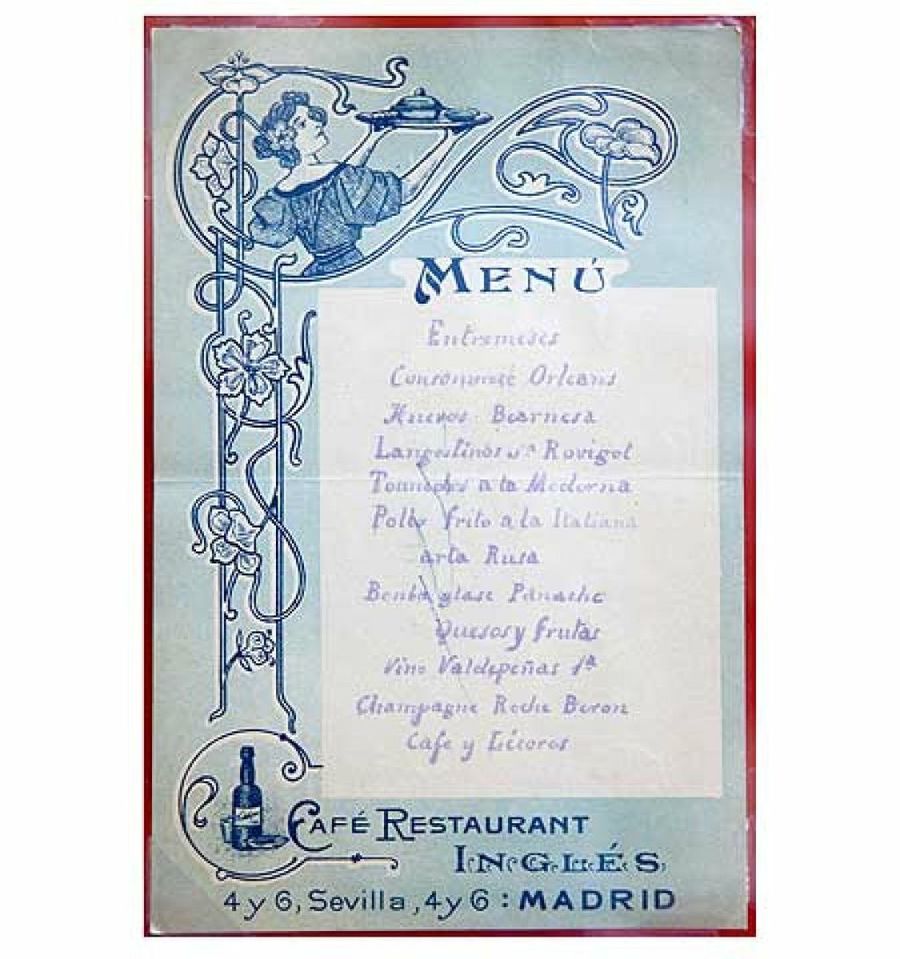 MENÚ
Entremeses
Consommé Orleans
Huevos Bearnesa
Langostinos Rovigot
a la Moderna
Pollo frito a la Italiana
Rusa
glase Panache
Quesos y frutas
Vino Valdepeñas 1ª
Champagne
Cafe y Licores
CAFÉ RESTAURANT
INGLÉS
4 y 6, Sevilla, 4 y 6 : MADRID